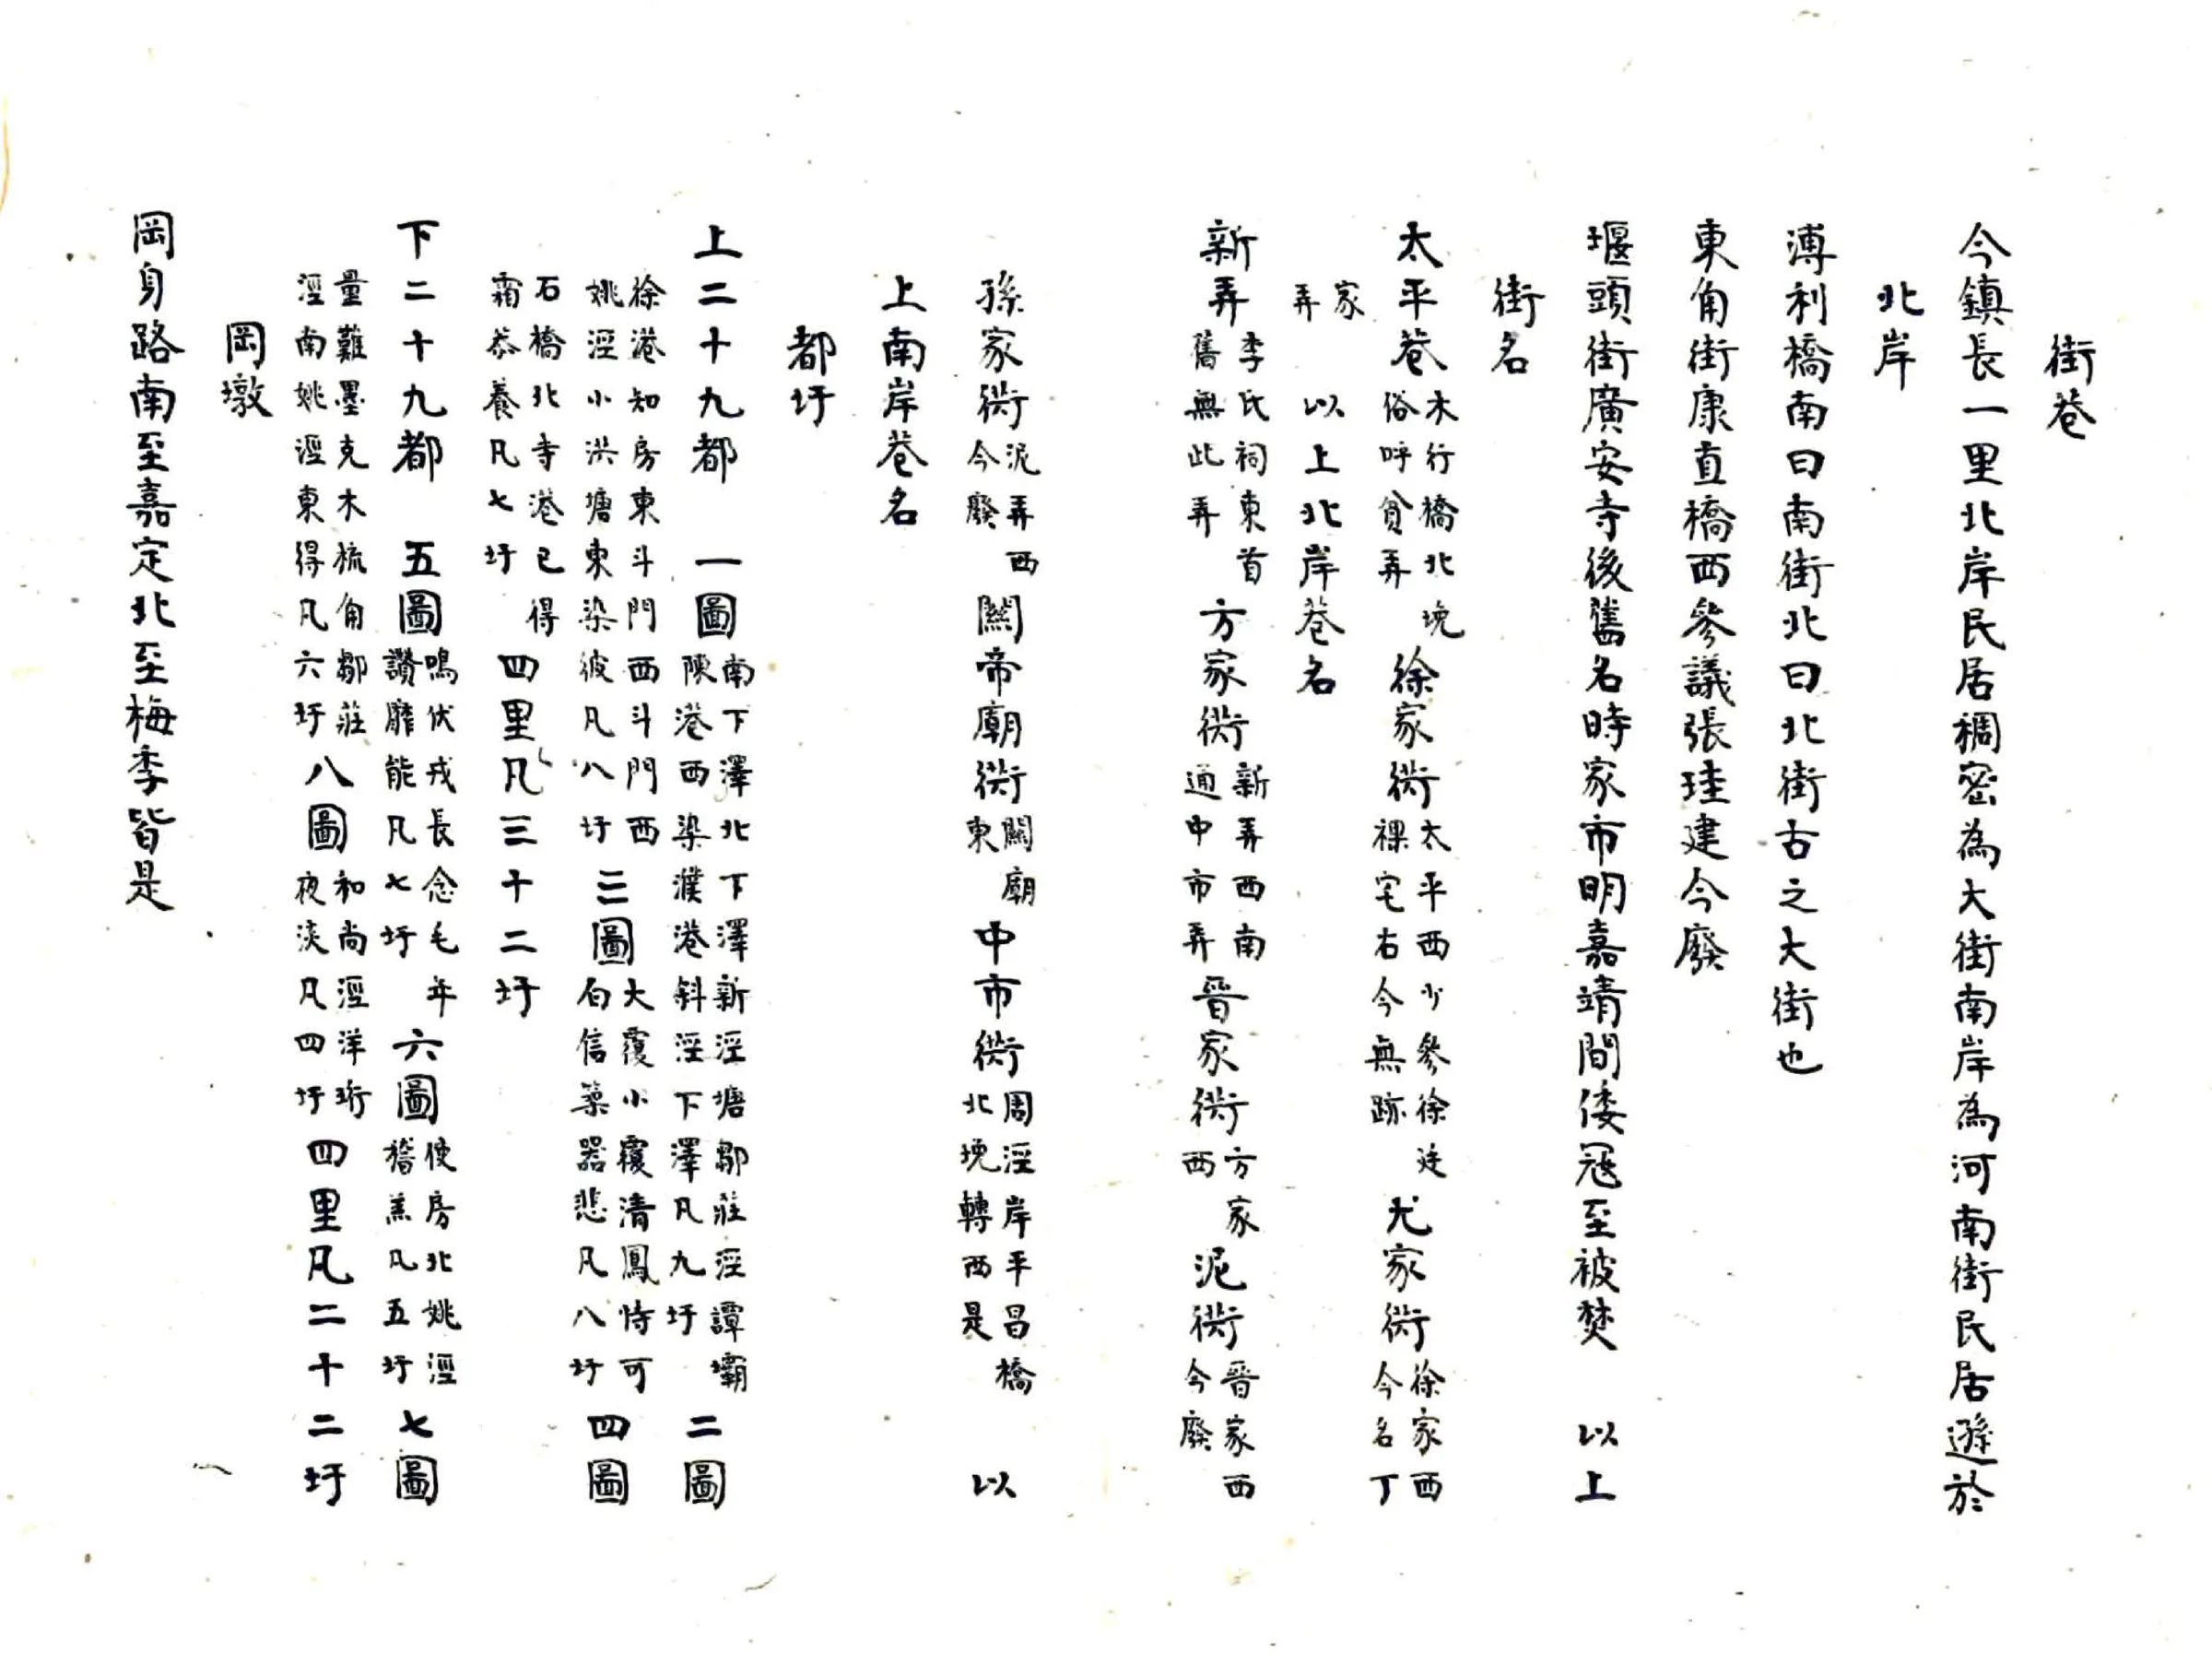 街巷
今鎮長一里北岸民居稠密為大街南岸為河南街民居遜於
北岸
溥利橋南曰南街北曰北街古之大街也
東角街康直橋西參議張珪建今廢
堰頭街廣安寺後舊名時家市明嘉靖間倭冦至被焚　以上
街名
太平巷木行橋北堍俗呼貟弄　徐家衖太平西少參徐廷祼宅右今無跡　尤家衖徐家西今名丁
家弄　以上北岸巷名
新弄李氏祠東首舊無此弄　方家衖新弄西南通中市弄　晉家衖方家西　泥衖晉家西今廢
孫家衖泥弄西今廢　關帝廟衖關廟東　中市衖周涇岸平昌橋北堍轉西是　以
上南岸巷名
都圩
上二十九都　一圖南下澤北下澤新涇塘鄒莊涇譚壩陳港西染濮港斜涇下澤凡九圩　二圖
徐港知房東斗門西斗門西姚涇小洪塘東染彼凡八圩　三圖大覆小覆清鳳恃可白信築器悲凡八圩　四圖
石橋北寺港已得霜恭養凡七圩　四里凡三十二圩
下二十九都　五圖鳴伏戎長念毛年讚靡能凡七圩　六圖使房北姚涇稽羔凡五圩　七圖
量難墨克木梳角鄒莊涇南姚涇東得凡六圩　八圖和尚涇洋珩夜淡凡四圩　四里凡二十二圩
岡墩
岡身路南至嘉定北至梅李皆是